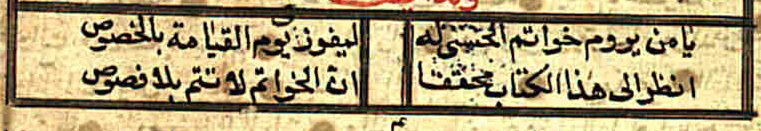 يا من يروم خواتم الحسنى له ليفوز يوم القيامة بالخصوص
انظر الى هذا الكتاب محققا ان الخواتم لا تتم بلا فصوص